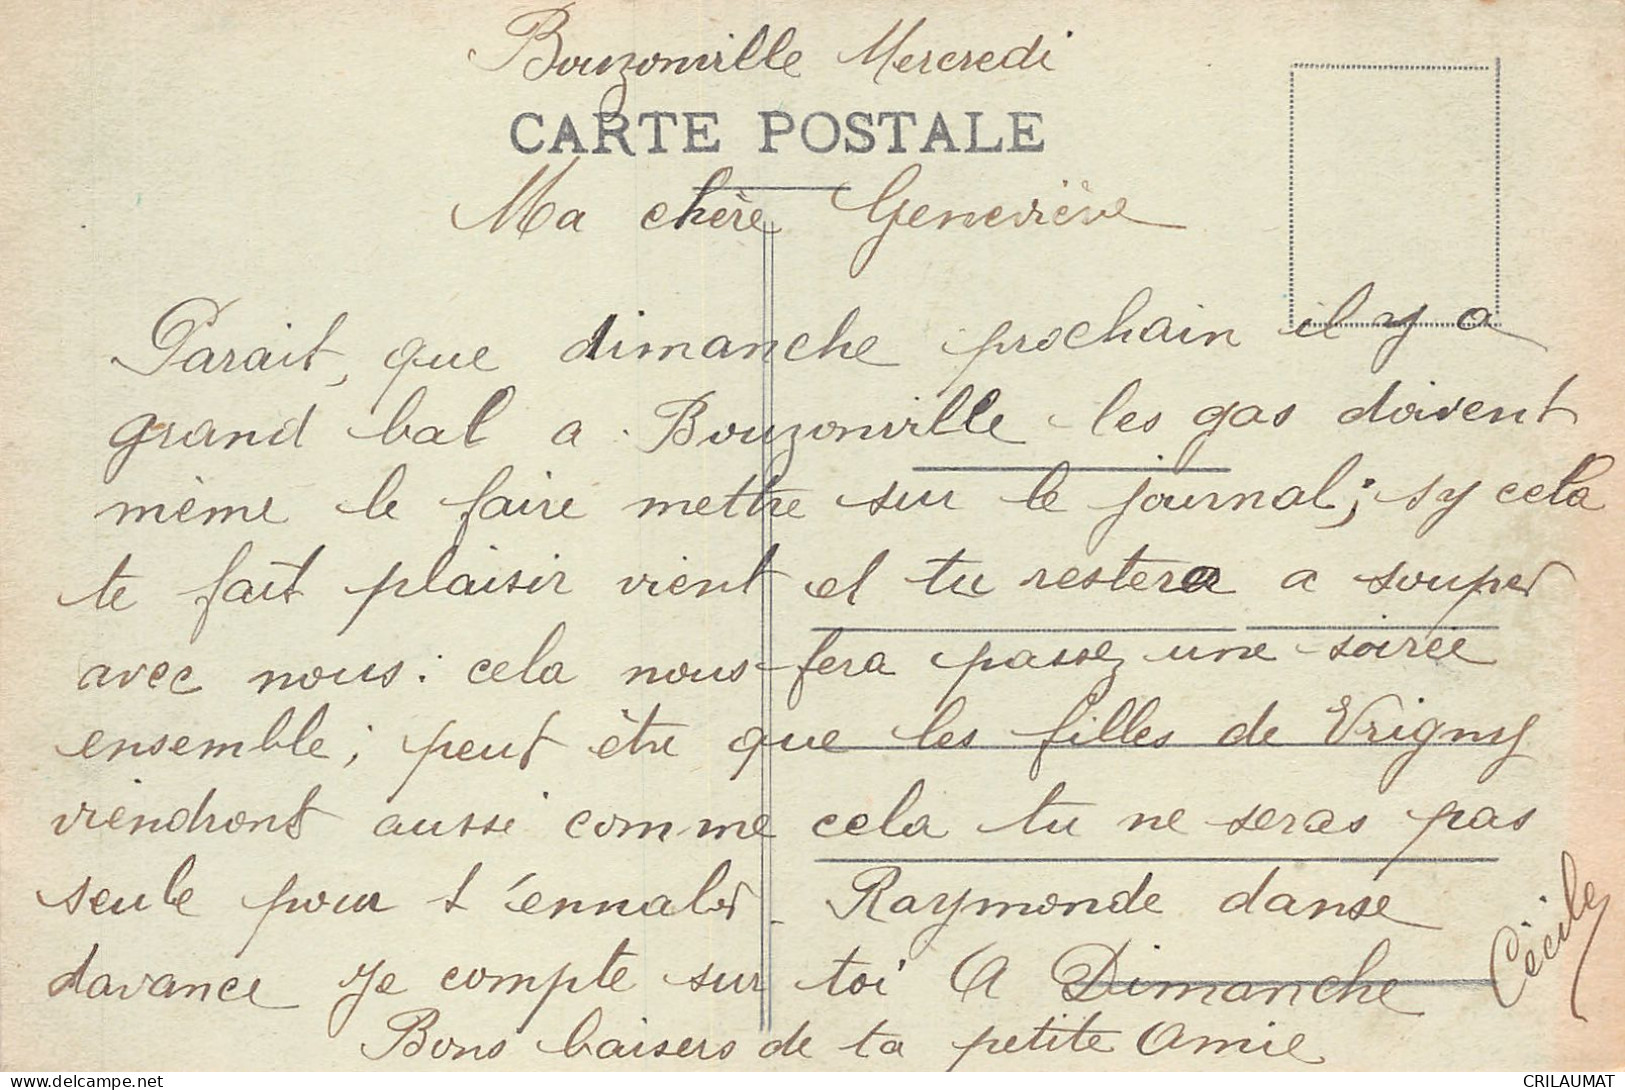 Bouzonville Mercredi
CARTE POSTALE
Ma chère Geneviève
Parait, que dimanche prochain il y a
grand bal a Bouzonville les gas doivent
même le faire mettre sur le journal ; sy cela
te fait plaisir vient et tu restera a souper
avec nous : cela nous fera passez une soirée
ensemble ; peut être que les filles de Vrigny
viendront aussi comme cela tu ne seras pas
seule pour t'ennaler. Raymonde danse
davance Je compte sur toi A Dimanche
Bons baisers de ta petite Amie
Cécile
delcampe.net
CRILAUMAT